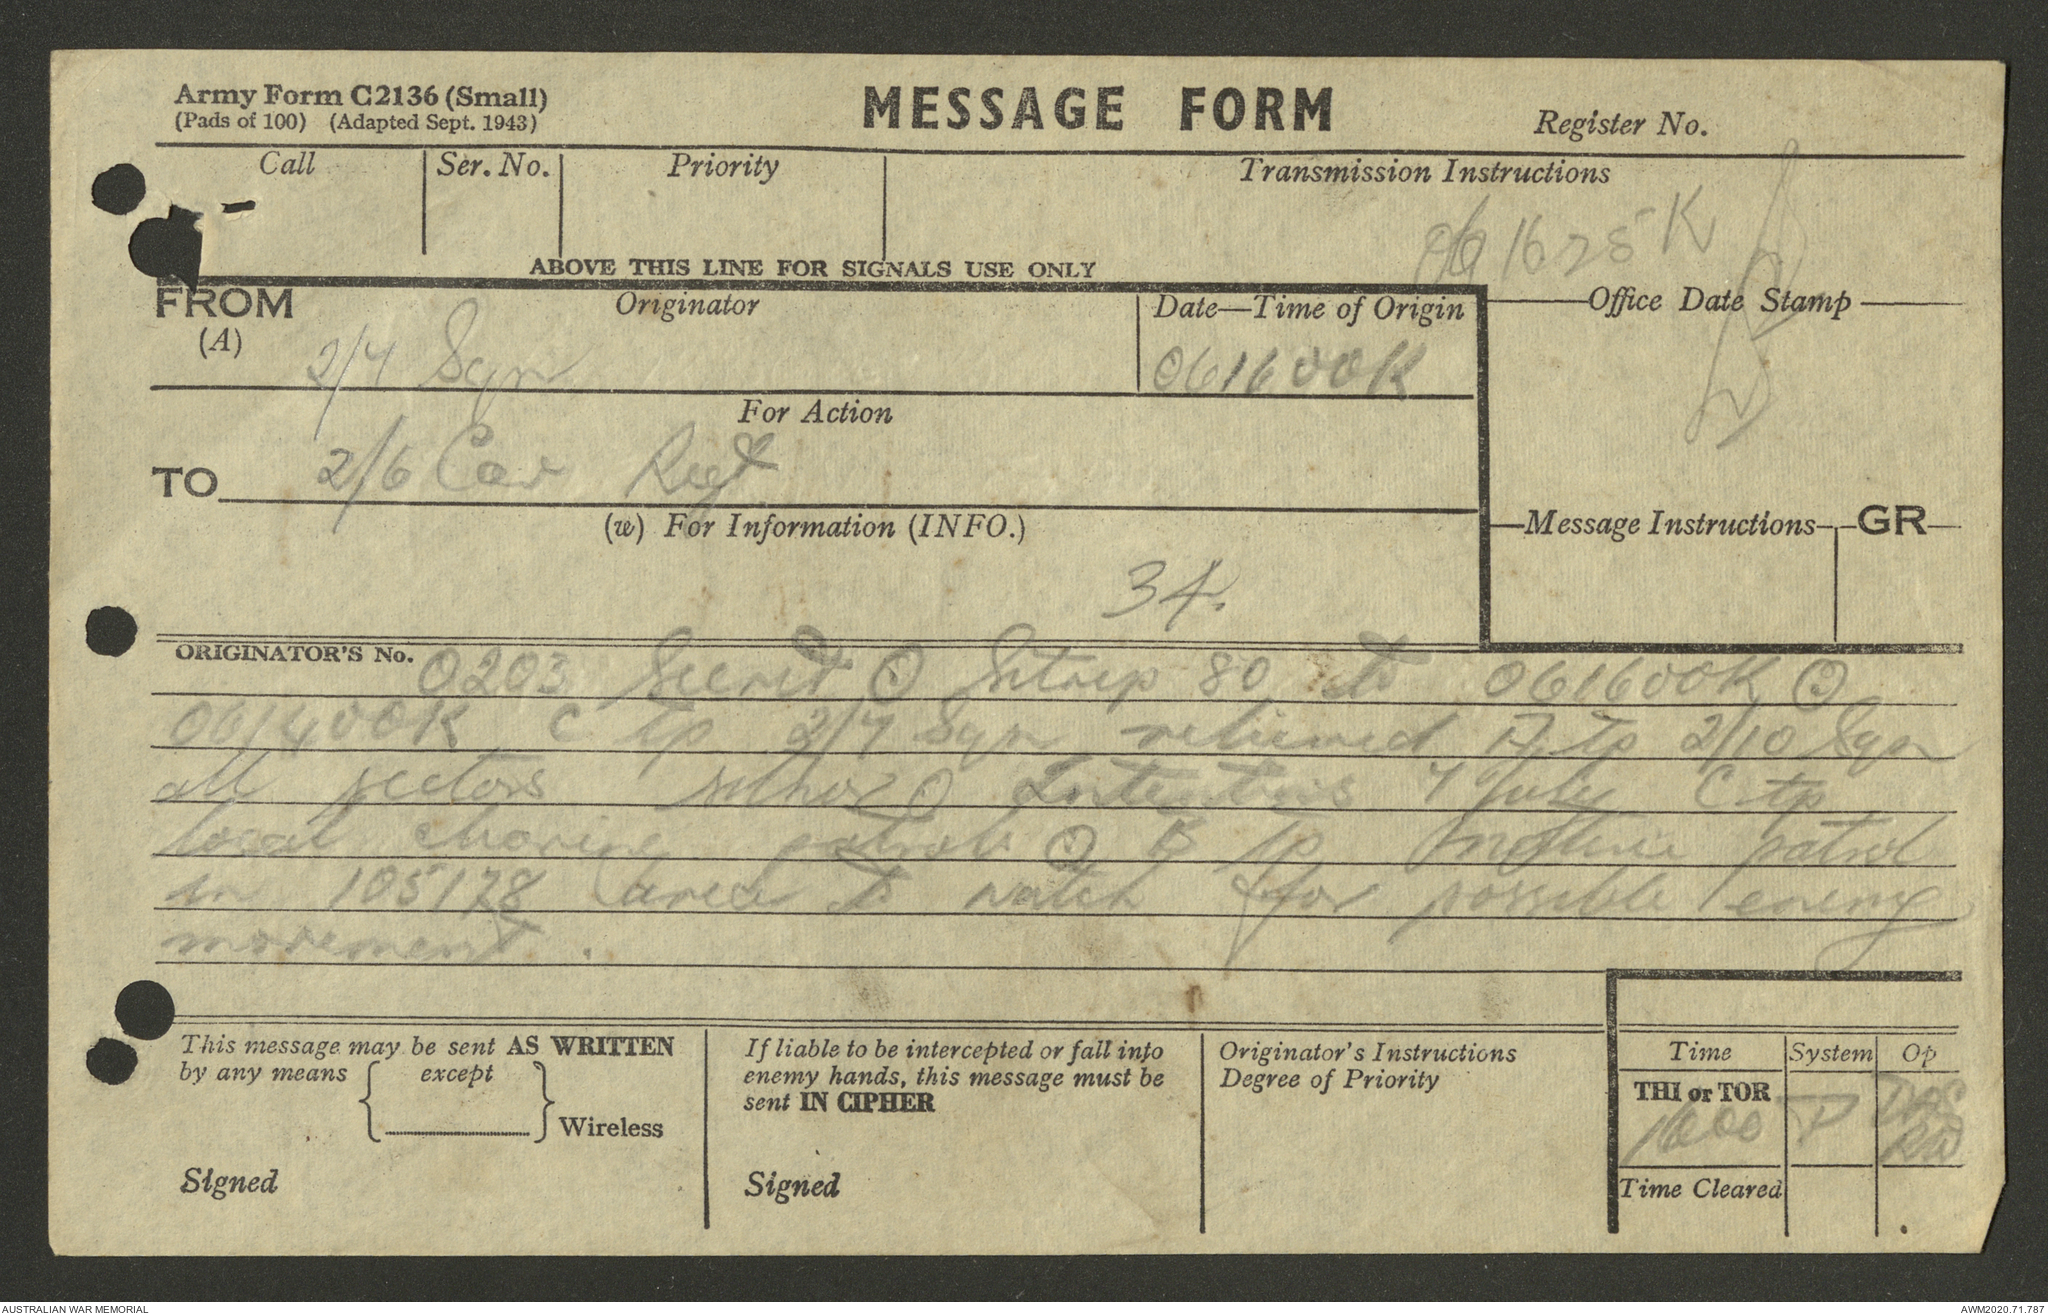 Army Form C2136 (Small)
(Pads of 100) (Adapted Sept. 1943)
MESSAGE FORM
Register No.
Call
Ser. No.
Priority
Transmission Instructions
061625K
ABOVE THIS LINE FOR SIGNALS USE ONLY
FROM
(A)
Originator
Date—Time of Origin
Office Date Stamp
2/7 Sqn
061600K
For Action
TO
2/6 Cav Regt
(w) For Information (INFO.)
Message Instructions
GR
34.
ORIGINATOR'S No.
0203 Secret ⊙ Sitrep 80 to 061600K ⊙
061400K C tp 2/7 Sqn relieved A tp 2/10 Sqn
all sectors ⊙ Intentions 7 July C tp
local patrols ⊙ B tp patrol
in 105178 area to watch for possible enemy
movement.
This message may be sent AS WRITTEN
by any means except
Wireless
Signed
If liable to be intercepted or fall into
enemy hands, this message must be
sent IN CIPHER
Signed
Originator's Instructions
Degree of Priority
Time
System
Op
THI or TOR
1600
Time Cleared
AUSTRALIAN WAR MEMORIAL
AWM2020.71.787